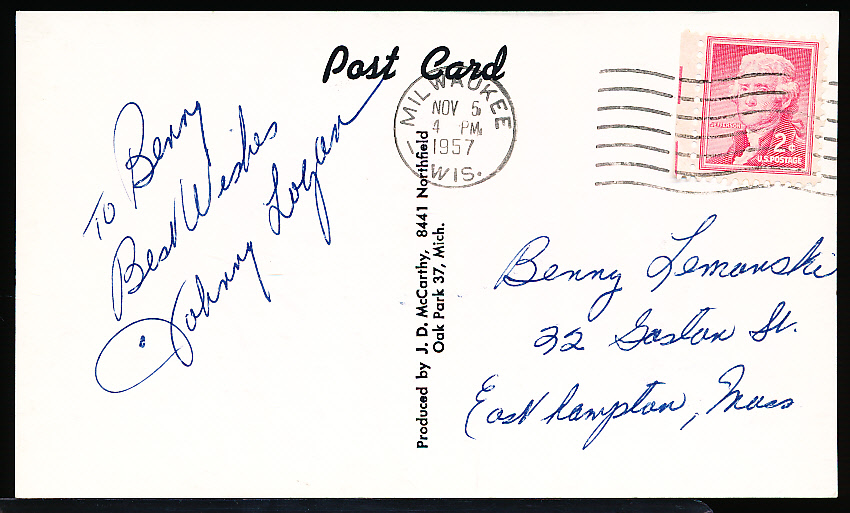 Post Card
To Benny
Best Wishes
Johnny Logan
MILWAUKEE
NOV 5
4 PM
1957
WIS.
JEFFERSON
2¢
U.S. POSTAGE
Produced by J. D. McCarthy, 8441 Northfield
Oak Park 37, Mich.
Benny Lemanski
22 Gaston St.
Easthampton, Mass